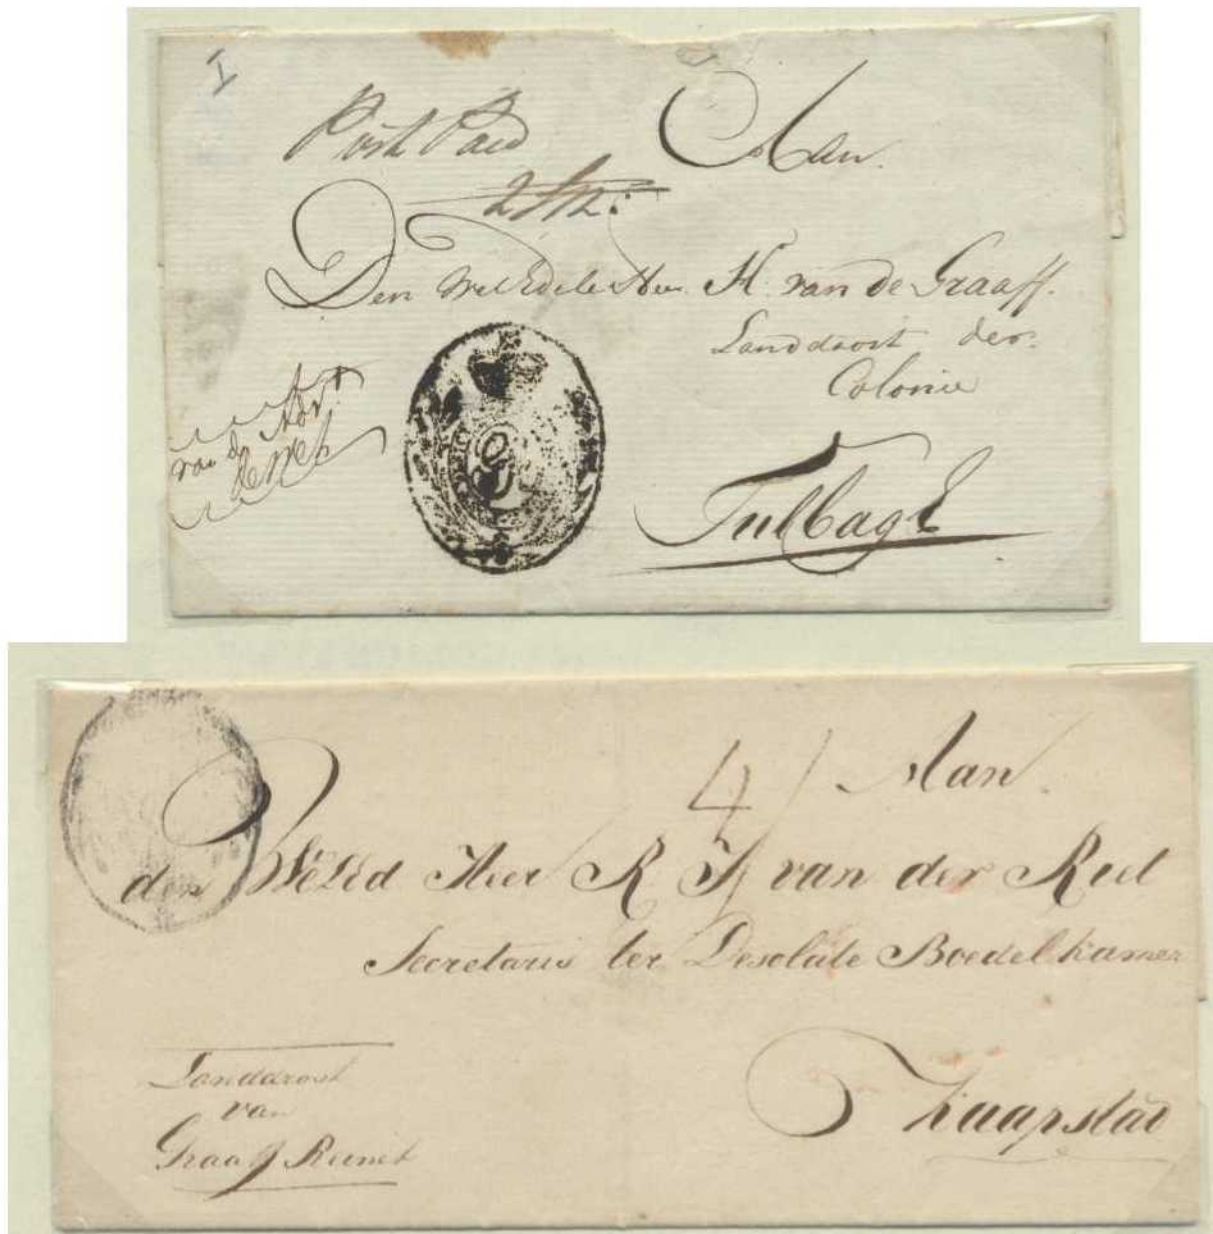 I
Post Paid
Aan
Den Wel Edele Heer H. van de Graaff.
Landdrost der.
Colonie
van de
Tulbagh
4/
Aan
den WelEd Heer R J van der Riet
Secretaris ter Desolate Boedel kamer
Landdrost
van
Graaff Reinet
Kaapstad